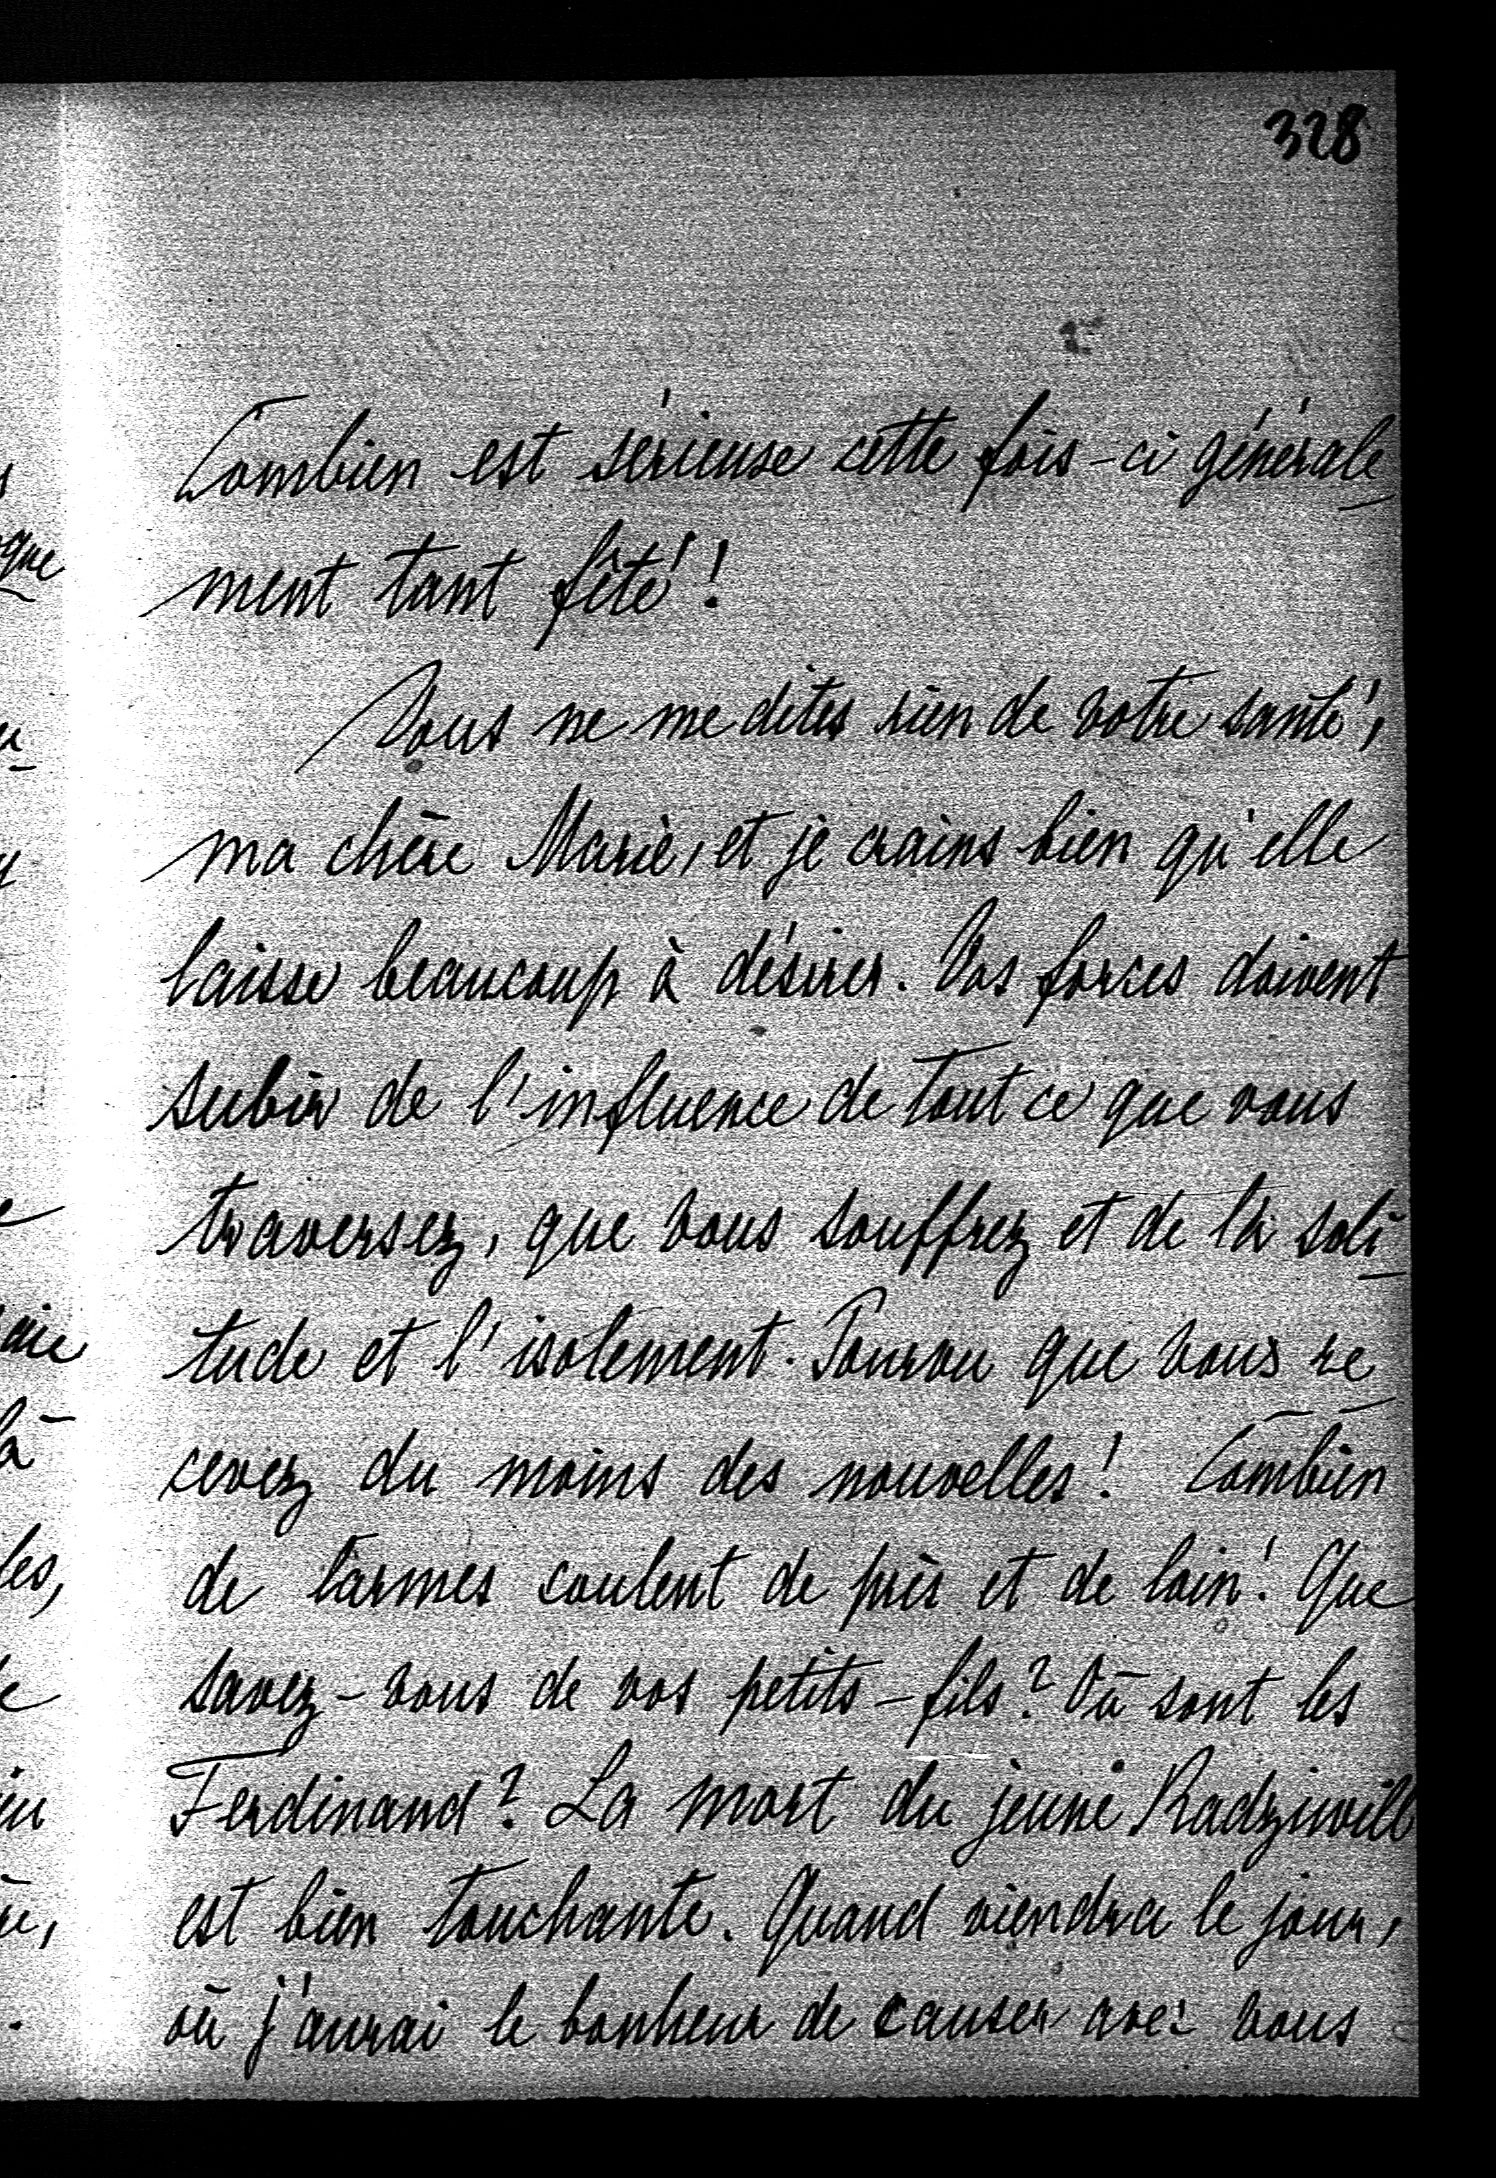 328
Combien est sérieuse cette fois-ci générale
ment tant fêté!
Vous ne me dites rien de votre santé,
ma chère Marie, et je crains bien qu'elle
laisse beaucoup à désirer. Vos forces doivent
subir de l'influence de tout ce que vous
traversez, que vous souffrez et de la soli
tude et l'isolement. Pourvu que vous re
cevez du moins des nouvelles! Combien
de larmes coulent de près et de loin! Que
savez-vous de vos petits-fils? Où sont les
Ferdinand? La mort du jeune Radziwill
est bien touchante. Quand viendra le jour,
où j'aurai le bonheur de causer avec vous